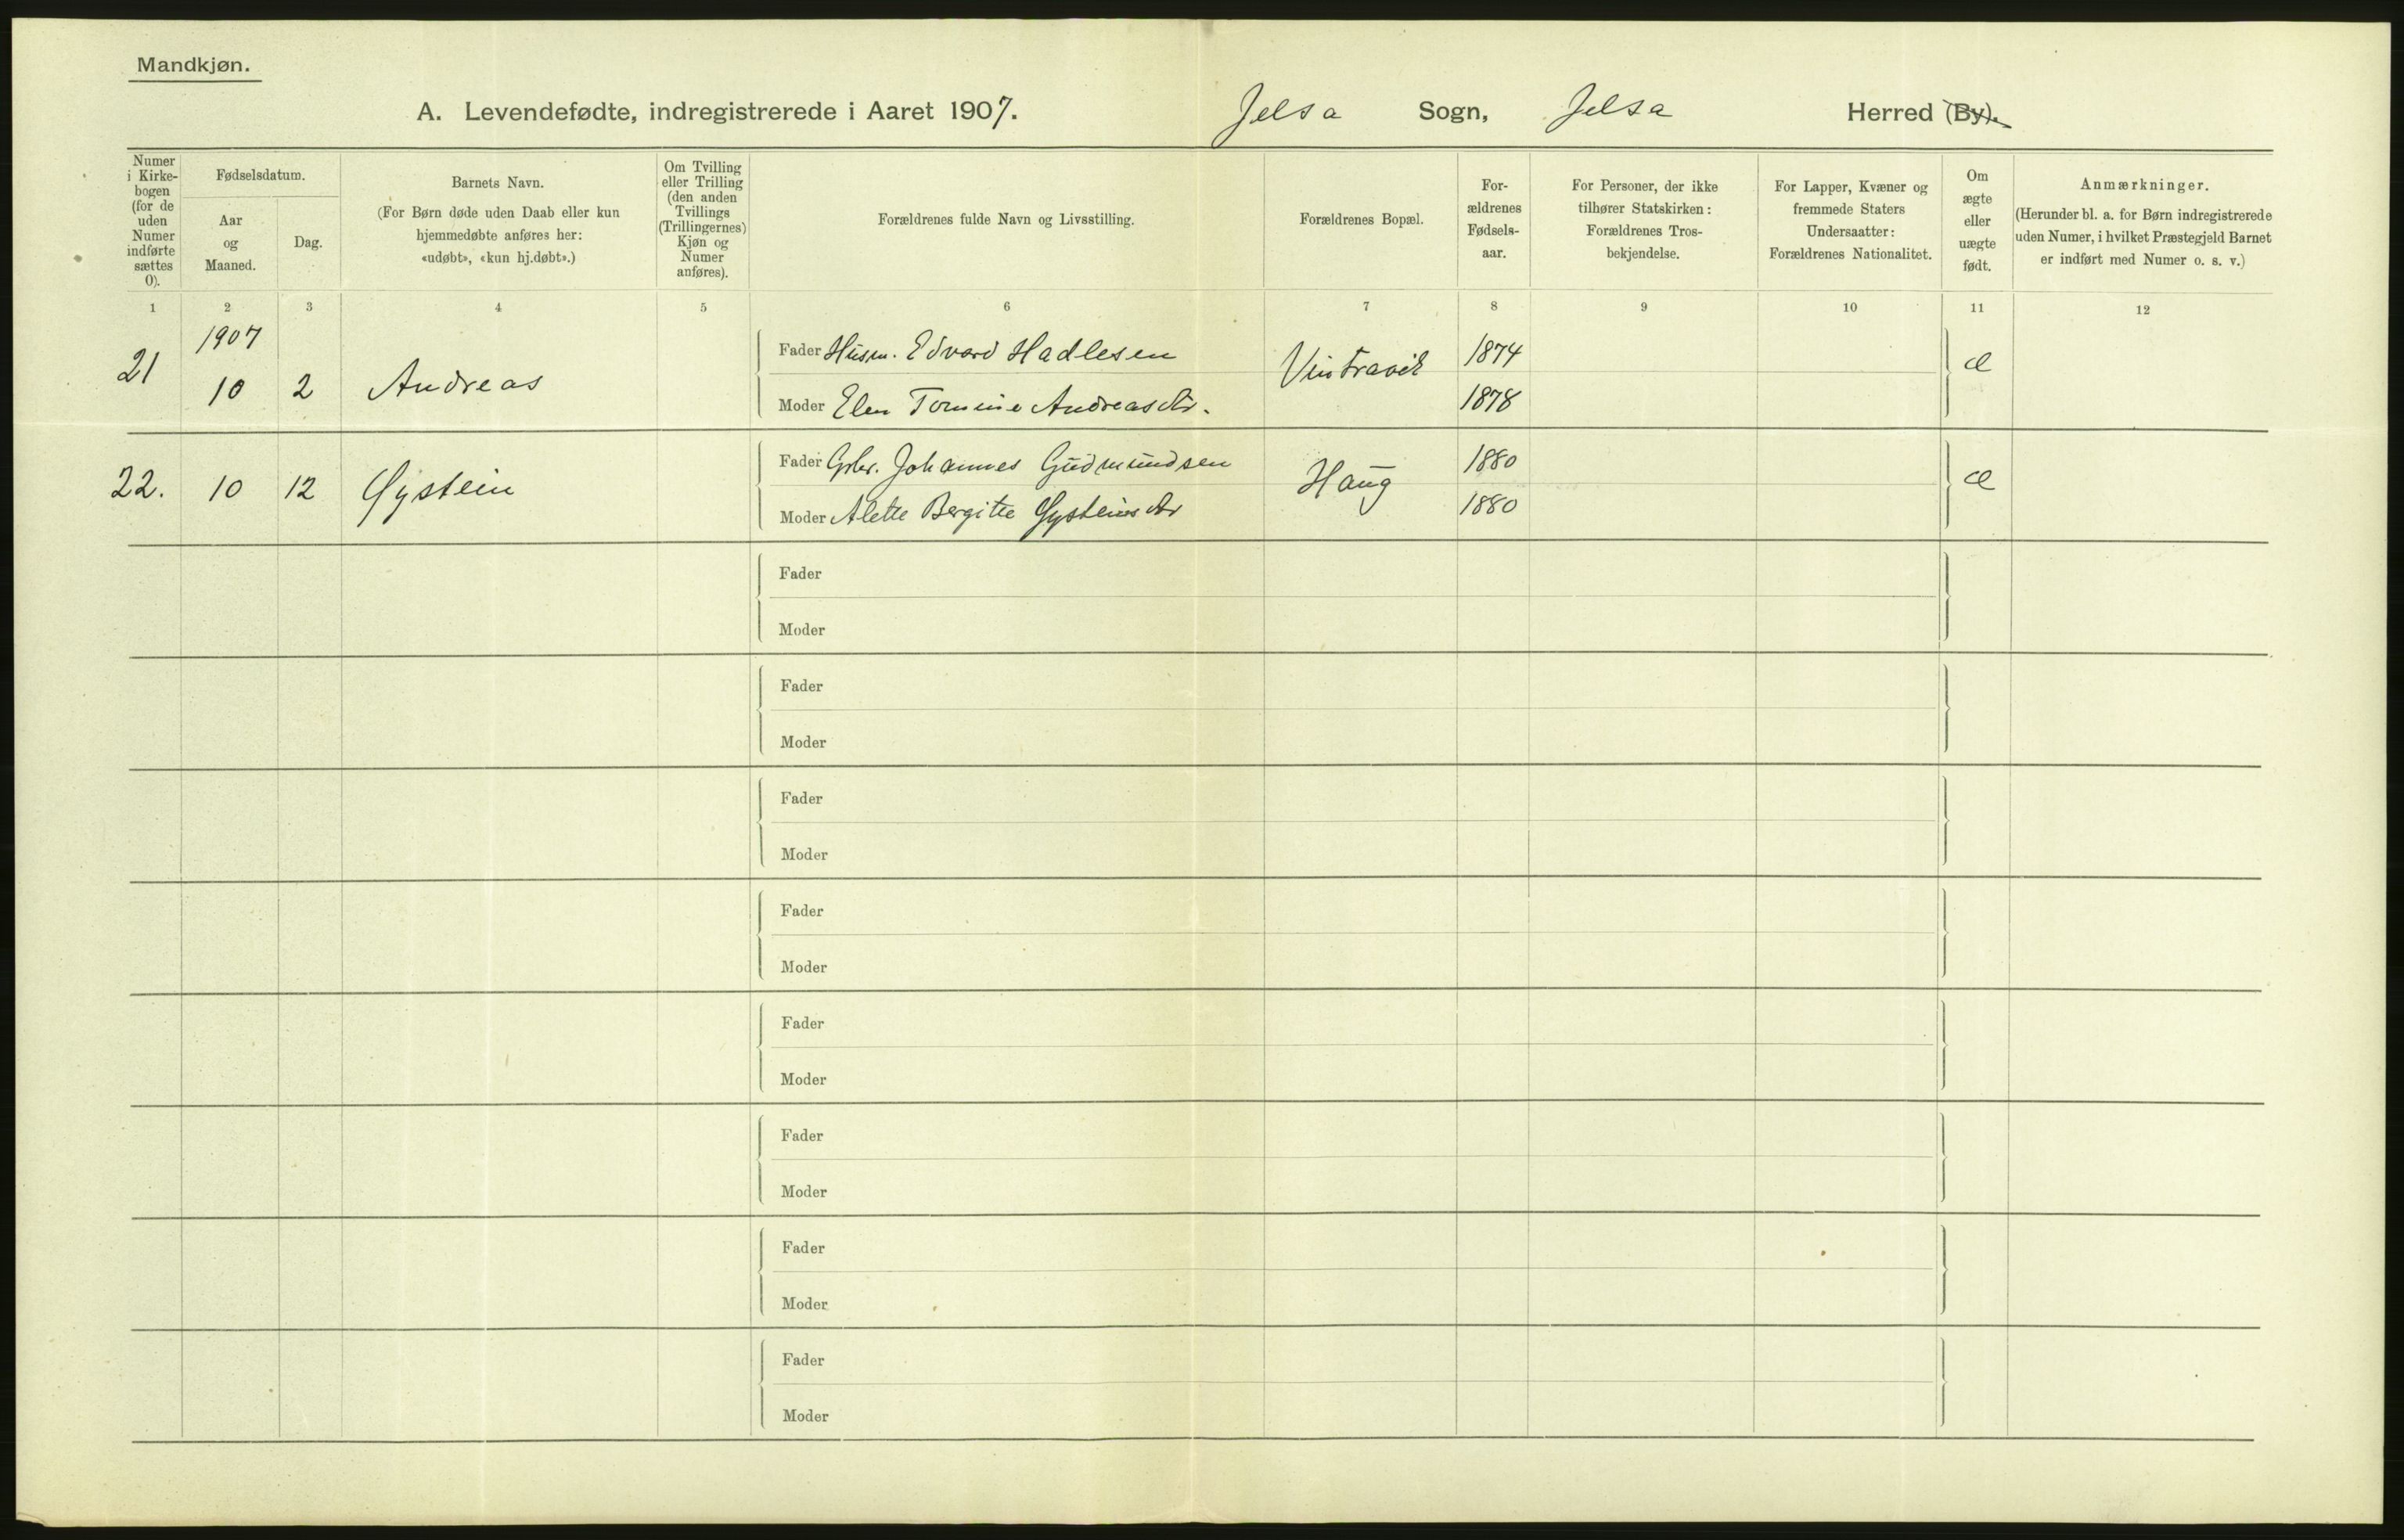 Mandkjøn.
A. Levendefødte, indregistrerede i Aaret 1907. Jelsa Sogn, Jelsa Herred (By).
Numer
i Kirke-
bogen
(for de
uden
Numer
indførte
sættes
0).
Fødselsdatum.
Aar
og
Maaned.
Dag.
Barnets Navn.
(For Børn døde uden Daab eller kun
hjemmedøbte anføres her:
«udøbt», «kun hj.døbt».)
Om Tvilling
eller Trilling
(den anden
Tvillings
(Trillingernes)
Kjøn og
Numer
anføres).
Forældrenes fulde Navn og Livsstilling.
Forældrenes Bopæl.
For-
ældrenes
Fødsels-
aar.
For Personer, der ikke
tilhører Statskirken:
Forældrenes Tros-
bekjendelse.
For Lapper, Kvæner og
fremmede Staters
Undersaatter:
Forældrenes Nationalitet.
Om
ægte
eller
uægte
født.
Anmærkninger.
(Herunder bl. a. for Børn indregistrerede
uden Numer, i hvilket Præstegjeld Barnet
er indført med Numer o. s. v.)
1 2 3 4 5 6 7 8 9 10 11 12
1907
21 10 2 Andreas
Fader Husm. Edvard Hadlesen
Moder Elen Tomine Andreasdtr.
Vintravik
1874
1878
æ
22. 10 12 Øystein
Fader Gbr. Johannes Gudmundsen
Moder Alette Bergitte Øysteinsdtr
Haug
1880
1880
æ
Fader
Moder
Fader
Moder
Fader
Moder
Fader
Moder
Fader
Moder
Fader
Moder
Fader
Moder
Fader
Moder